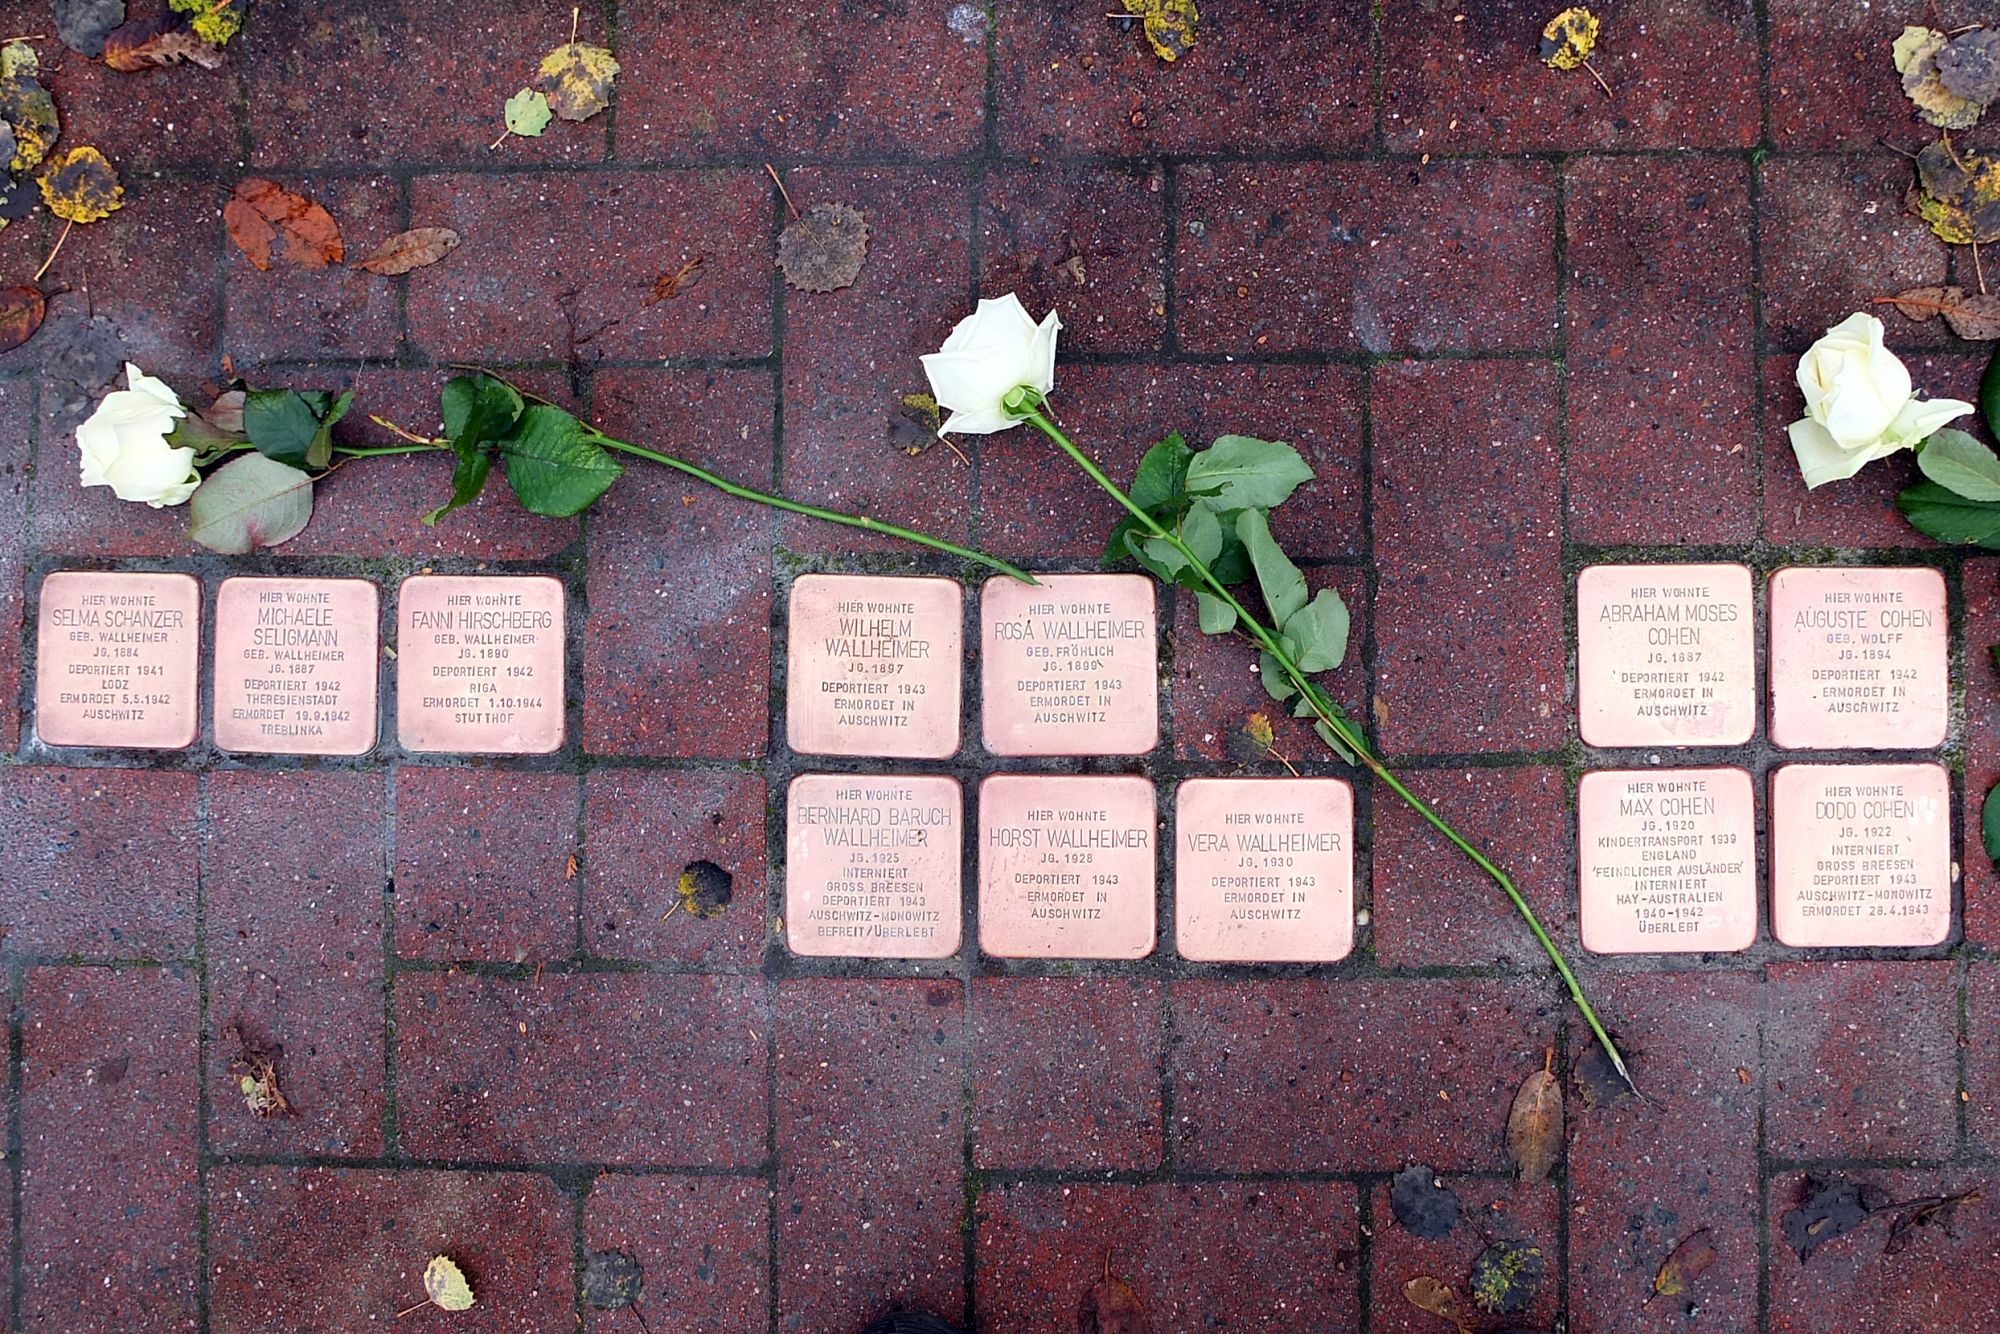 HIER WOHNTE
SELMA SCHANZER
GEB. WALLHEIMER
JG. 1884
DEPORTIERT 1941
ŁODZ
ERMORDET 5.5.1942
AUSCHWITZ
HIER WOHNTE
MICHAELE
SELIGMANN
GEB. WALLHEIMER
JG. 1887
DEPORTIERT 1942
THERESIENSTADT
ERMORDET 19.9.1942
TREBLINKA
HIER WOHNTE
FANNI HIRSCHBERG
GEB. WALLHEIMER
JG. 1890
DEPORTIERT 1942
RIGA
ERMORDET 1.10.1944
STUTTHOF
HIER WOHNTE
WILHELM
WALLHEIMER
JG. 1897
DEPORTIERT 1943
ERMORDET IN
AUSCHWITZ
HIER WOHNTE
ROSA WALLHEIMER
GEB. FRÖHLICH
JG. 1899
DEPORTIERT 1943
ERMORDET IN
AUSCHWITZ
HIER WOHNTE
BERNHARD BARUCH
WALLHEIMER
JG. 1925
INTERNIERT
GROSS BREESEN
DEPORTIERT 1943
AUSCHWITZ-MONOWITZ
BEFREIT/ÜBERLEBT
HIER WOHNTE
HORST WALLHEIMER
JG. 1928
DEPORTIERT 1943
ERMORDET IN
AUSCHWITZ
HIER WOHNTE
VERA WALLHEIMER
JG. 1930
DEPORTIERT 1943
ERMORDET IN
AUSCHWITZ
HIER WOHNTE
ABRAHAM MOSES
COHEN
JG. 1887
DEPORTIERT 1942
ERMORDET IN
AUSCHWITZ
HIER WOHNTE
AUGUSTE COHEN
GEB. WOLFF
JG. 1894
DEPORTIERT 1942
ERMORDET IN
AUSCHWITZ
HIER WOHNTE
MAX COHEN
JG. 1920
KINDERTRANSPORT 1939
ENGLAND
'FEINDLICHER AUSLÄNDER'
INTERNIERT
HAY-AUSTRALIEN
1940-1942
ÜBERLEBT
HIER WOHNTE
DODO COHEN
JG. 1922
INTERNIERT
GROSS BREESEN
DEPORTIERT 1943
AUSCHWITZ-MONOWITZ
ERMORDET 28.4.1943